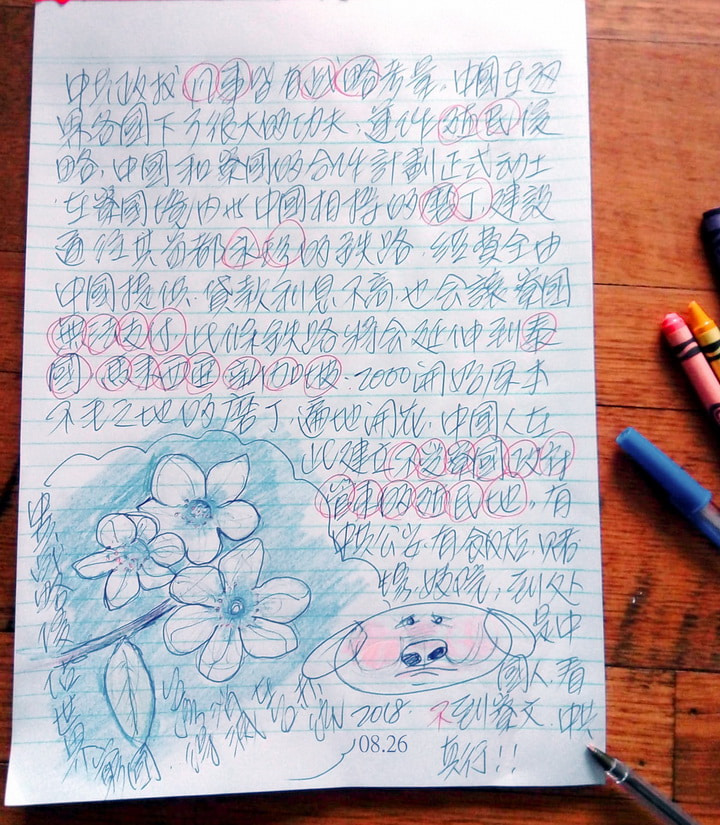 中共政权凡事皆有战略考量，中國在世
界各國下了很大的功夫，進行殖民侵
略，中國和寮國的合作計劃正式动土
在寮國境内與中國相接的磨丁建設
通往其首都永珍的铁路，經費全由
中國提供，貸款利息不高，也会讓寮國
無法支付，此條铁路將会延伸到泰
國、馬來西亚、新加坡。2000開始原本
不毛之地的磨丁遍地開花，中國人在
此建立不受寮國政府
管束的殖民地，有
中共公安，有飯店，賭
場，妓院，到处
是中
國人，看
不到寮文，中共
真行！！
中共战略侵佔世界
2018
08.26